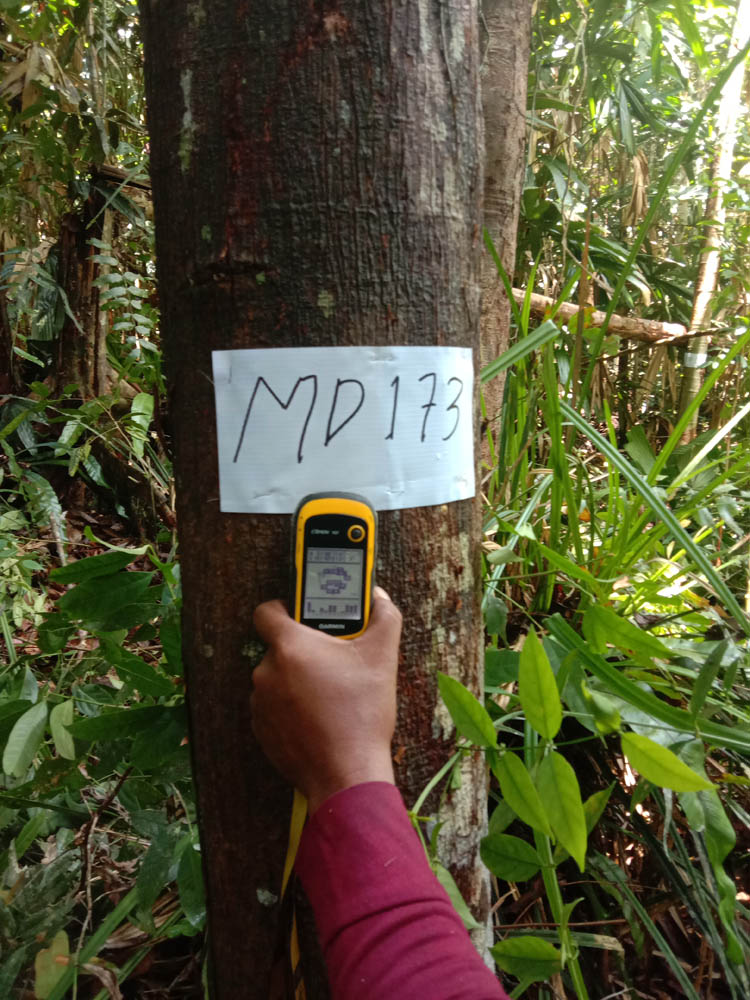 MD 173
eTREX 10
GARMIN